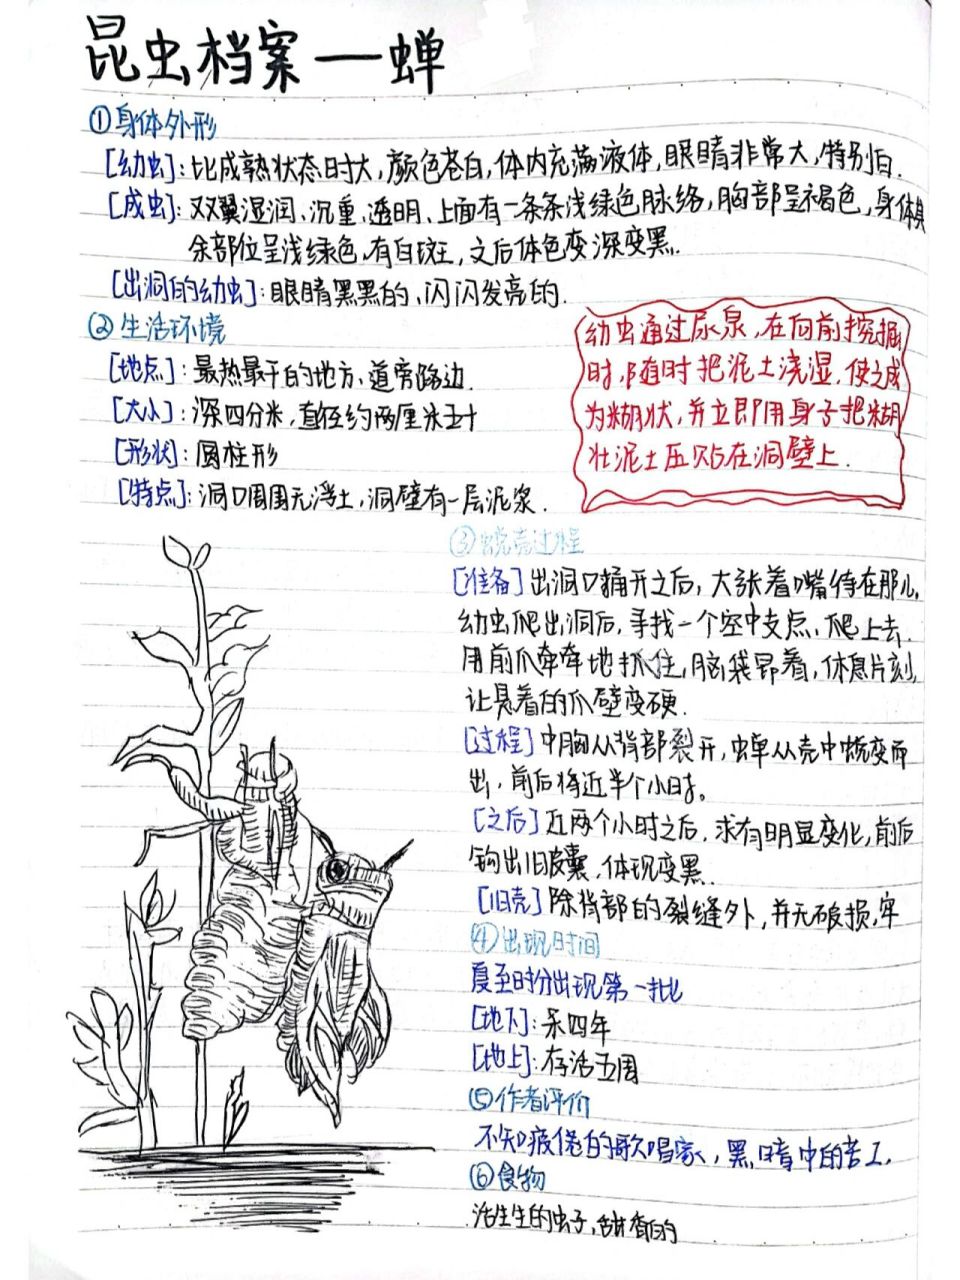 昆虫档案—蝉
①身体外形
[幼虫]:比成熟状态时大,颜色苍白,体内充满液体,眼睛非常大,特别白.
[成虫]:双翼湿润、沉重、透明、上面有一条条浅绿色脉络,胸部呈褐色,身体其
余部位呈浅绿色,有白斑,之后体色变深变黑.
[出洞的幼虫]:眼睛黑黑的、闪闪发亮的.
②生活环境
[地点]:最热最干的地方、道旁路边.
[大小]:深四分米,直径约两厘米五十
[形状]:圆柱形
[特点]:洞口周围无浮土,洞壁有一层泥浆.
幼虫通过尿泉,在向前挖掘
时,随时把泥土浇湿,使之成
为糊状,并立即用身子把糊
壮泥土压贴在洞壁上.
③蜕壳过程
[准备]出洞口捅开之后,大张着嘴待在那儿,
幼虫爬出洞后,寻找一个空中支点,爬上去.
用前爪牵牵地抓住,脑袋昂着,休息片刻,
让悬着的爪壁变硬.
[过程]中胸从背部裂开,蝉从壳中蜕变而
出,前后将近半个小时。
[之后]近两个小时之后,求有明显变化,前后
钩出旧皮囊,体现变黑.
[旧壳]除背部的裂缝外,并无破损,牢
④出现时间
夏至时分出现第一批
[地下]:呆四年
[地上]:存活五周
⑤作者评价
不知疲倦的歌唱家,黑暗中的苦工.
⑥食物
活生生的虫子,